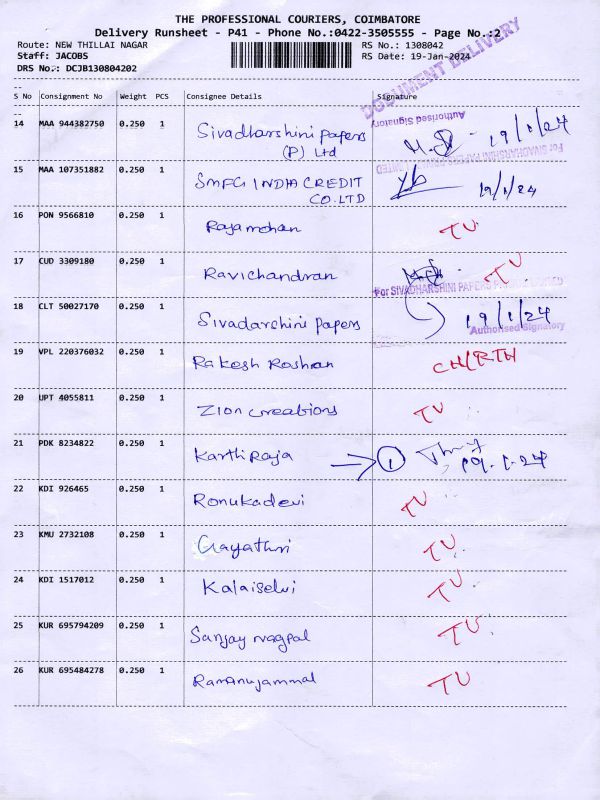 THE PROFESSIONAL COURIERS, COIMBATORE
Delivery Runsheet - P41 - Phone No.:0422-3505555 - Page No.:2
Route: NEW THILLAI NAGAR RS No.: 1308042
Staff: JACOBS RS Date: 19-Jan-2024
DRS No.: DCJB130804202
DOCUMENT DELIVERY
S No Consignment No Weight PCS Consignee Details Signature
14 MAA 944382750 0.250 1 Sivadharshini papers
(P) Ltd
Authorised Signatory
19/1/24
For SIVADHARSHINI PAPERS PRIVATE LIMITED
15 MAA 107351882 0.250 1 SMFG INDIA CREDIT
CO.LTD
19/1/24
16 PON 9566810 0.250 1 Rajamohan TU
17 CUD 3309180 0.250 1 Ravichandran TU
For SIVADHARSHINI PAPERS PRIVATE LIMITED
18 CLT 50027170 0.250 1 Sivadarshini papers 19/1/24
Authorised Signatory
19 VPL 220376032 0.250 1 Rakesh Roshan CH/RTH
20 UPT 4055811 0.250 1 Zion creations TU
21 PDK 8234822 0.250 1 Karthi Raja 1 19.1.24
22 KDI 926465 0.250 1 Ronukadevi TU
23 KMU 2732108 0.250 1 Gayathri TU
24 KDI 1517012 0.250 1 Kalaiselvi TU
25 KUR 695794209 0.250 1 Sanjay nagpal TU
26 KUR 695484278 0.250 1 Ramanujammal TU